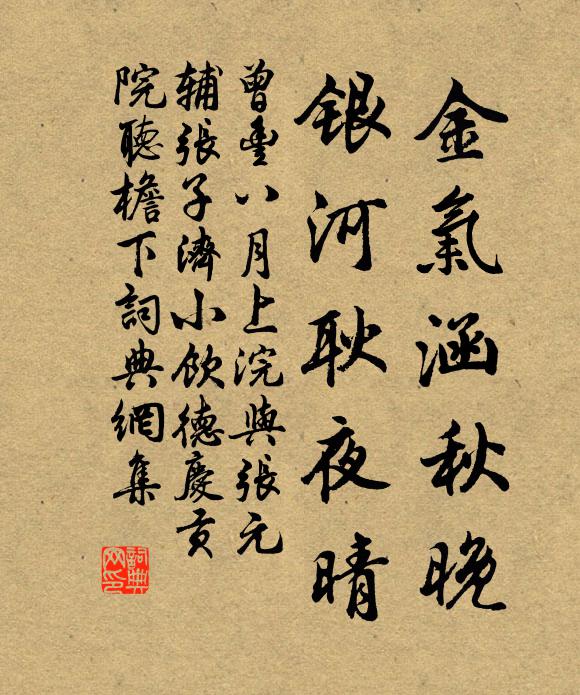 金氣涵秋晚
銀河耿夜晴
曾豐八月上浣與張元
辅張子濟小飲德慶貢
院聽檐下詞典網集
詞典
网印